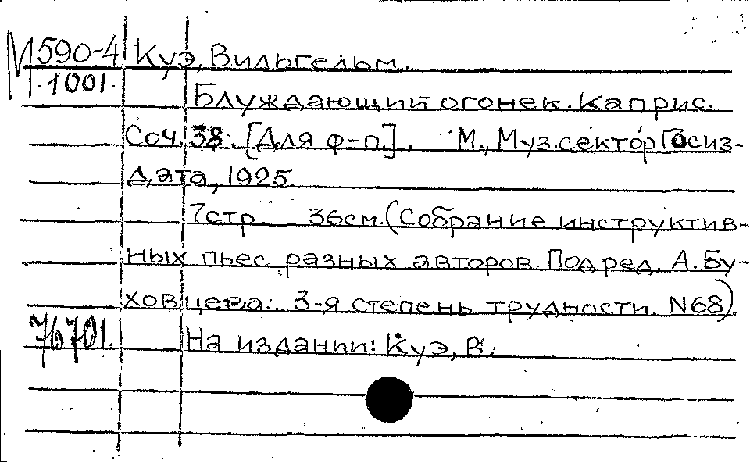 М590-4 Куэ, Вильгельм.
1001. Блуждающий огонек. Каприс.
Соч. 38. [Для ф-п]. М., Муз.сектор Госиз-
дата, 1925
7стр 36см. (Собрание инструктив-
ных пьес разных авторов. Под ред. А. Бу-
ховцева: 3-я степень трудности. N68).
76701. На издании: Куэ, В.